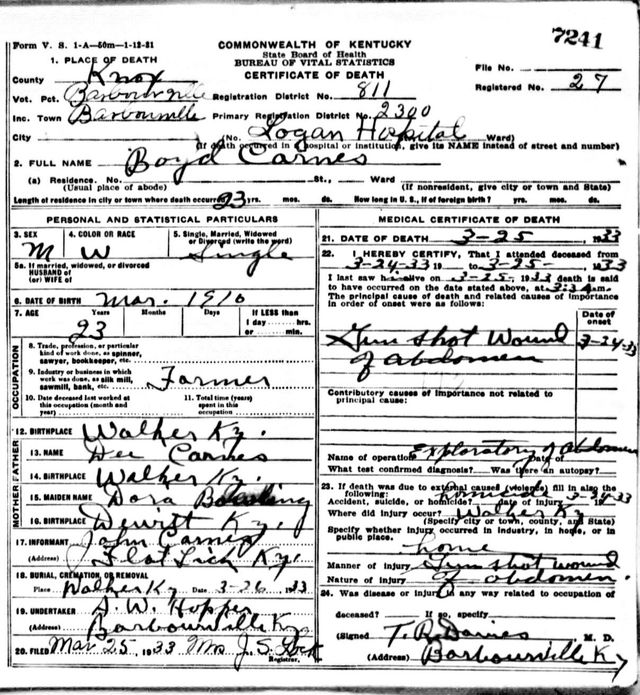 7241
Form V. S. 1-A—50m—1-12-31
COMMONWEALTH OF KENTUCKY
State Board of Health
BUREAU OF VITAL STATISTICS
CERTIFICATE OF DEATH
File No.
Registered No. 27
1. PLACE OF DEATH
County Knox
Vot. Pct. Barbourville Registration District No. 811
Inc. Town Barbourville Primary Registration District No. 2300
City (No. Logan Hospital Ward)
(If death occurred in a hospital or institution, give its NAME instead of street and number)
2. FULL NAME Boyd Carnes
(a) Residence. No. St., Ward
(Usual place of abode) (If nonresident, give city or town and State)
Length of residence in city or town where death occurred 23 yrs. mos. ds. How long in U. S., if of foreign birth? yrs. mos. ds.
PERSONAL AND STATISTICAL PARTICULARS
3. SEX 4. COLOR OR RACE 5. Single, Married, Widowed
or Divorced (write the word)
M W Single
5a. If married, widowed, or divorced
HUSBAND of
(or) WIFE of
6. DATE OF BIRTH Mar. 1910
7. AGE Years Months Days If LESS than
1 day hrs.
or min.
23
OCCUPATION
8. Trade, profession, or particular
kind of work done, as spinner,
sawyer, bookkeeper, etc.
9. Industry or business in which
work was done, as silk mill,
sawmill, bank, etc. Farmer
10. Date deceased last worked at
this occupation (month and
year)
11. Total time (years)
spent in this
occupation
12. BIRTHPLACE Walker Ky.
FATHER
13. NAME Dee Carnes
14. BIRTHPLACE Walker Ky.
MOTHER
15. MAIDEN NAME Dora
16. BIRTHPLACE Dewitt Ky.
17. INFORMANT John Carnes
(Address) Flat Lick Ky.
18. BURIAL, CREMATION, OR REMOVAL
Place Walker Ky Date 3-26 1933
19. UNDERTAKER Hopper
(Address) Barbourville Ky
20. FILED Mar 25 1933 Mrs J. S. Lock
Registrar.
MEDICAL CERTIFICATE OF DEATH
21. DATE OF DEATH 3-25 1933
22. I HEREBY CERTIFY, That I attended deceased from
3-24-33 19 to 3-25- 1933
I last saw h alive on 3-25, 1933 death is said
to have occurred on the date stated above, at m.
The principal cause of death and related causes of importance
in order of onset were as follows:
Date of
onset
Gun shot Wound 3-24-33
of abdomen
Contributory causes of importance not related to
principal cause:
Name of operation Exploratory of Abdomen Date of
What test confirmed diagnosis? Was there an autopsy?
23. If death was due to external causes (violence) fill in also the
following:
Accident, suicide, or homicide? homicide date of injury 3-24-33 19
Where did injury occur? Walker Ky
(Specify city or town, county, and State)
Specify whether injury occurred in industry, in home, or in
public place.
home
Manner of injury Gun shot wound
Nature of injury of abdomen.
24. Was disease or injury in any way related to occupation of
deceased? If so, specify
(Signed T. R. Davies M. D.
(Address) Barbourville Ky